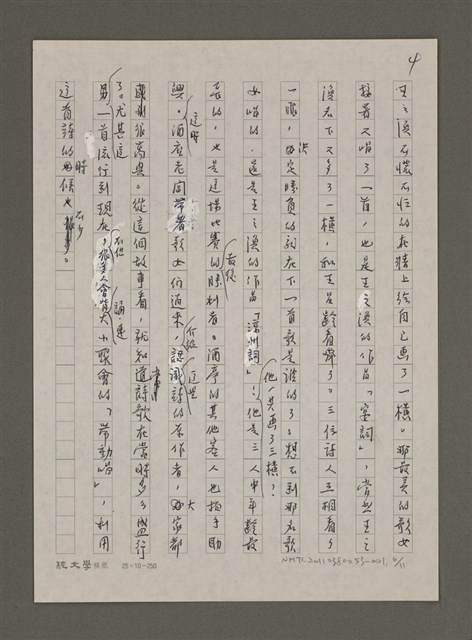 4
王之渙不慌不忙的在牆上給自己畫了一橫。那最美的歌女
接著又唱了一首，也是王之渙的作品「宴詞」，當然王之
渙名下又多了一橫，和王昌齡看齊了。三位詩人互相看了
一眼，決定勝負的詞在下一首歌是誰的了。想不到那名歌
女唱的，還是王之渙的作品「涼州詞」！他一共画了三橫！他是三人中年齡最
長的，也是這場比賽的最後勝利者。酒亭的其他客人也拍手助
興。這時酒店老闆帶著歌女们過來，介紹詩的原作者，大家都
感到很高興。從這個故事看，就知道詩歌在當時多多盛行
了。尤其這
另一首流行到現在，不但大小聚會的「帶動唱」，利用
這首詩的時候也不少。
硯文學稿纸 25×10=250
NMTL20110380053-001, 4/11